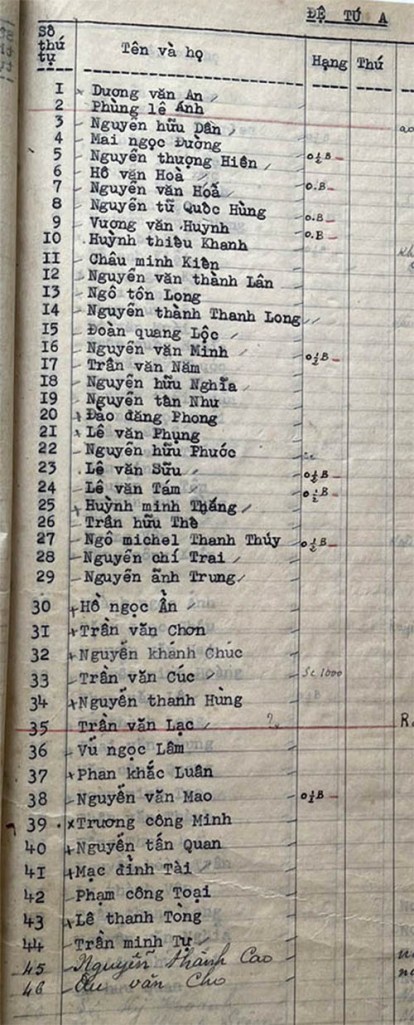 ĐỆ TỨ A
Số thứ tự Tên và họ Hạng Thú
1 Dương văn An
2 Phùng lê Ánh
3 Nguyễn hữu Dân
4 Mai ngọc Đường
5 Nguyễn thượng Hiền o½B
6 Hồ văn Hoà
7 Nguyễn văn Hoá o.B
8 Nguyễn tữ Quốc Hùng
9 Vương văn Huynh o.B
10 Huỳnh thiếu Khanh o.B
11 Châu minh Kiên
12 Nguyễn văn thành Lân
13 Ngô tôn Long
14 Nguyễn thành Thanh Long
15 Đoàn quang Lộc
16 Nguyễn văn Minh o½B
17 Trần văn Năm
18 Nguyễn hữu Nghĩa
19 Nguyễn tân Như
20 Đào đăng Phong
21 Lê văn Phụng
22 Nguyễn hữu Phước
23 Lê văn Sữu o½B
24 Lê văn Tám o½B
25 Huỳnh minh Thắng
26 Trần hữu Thê
27 Ngô michel Thanh Thúy o½B
28 Nguyễn chí Trai
29 Nguyễn ánh Trung
30 Hồ ngọc Ẩn
31 Trần văn Chơn
32 Nguyễn khánh Chúc
33 Trần văn Cúc Sc 1000
34 Nguyễn thanh Hùng
35 Trần văn Lạc
36 Vũ ngọc Lâm
37 Phan khắc Luân
38 Nguyễn văn Mao o½B
39 Trương công Minh
40 Nguyễn tấn Quan
41 Mạc đình Tài
42 Phạm công Toại
43 Lê thanh Tòng
44 Trần minh Tự
45 Nguyễn thành Cao
46 văn Cho